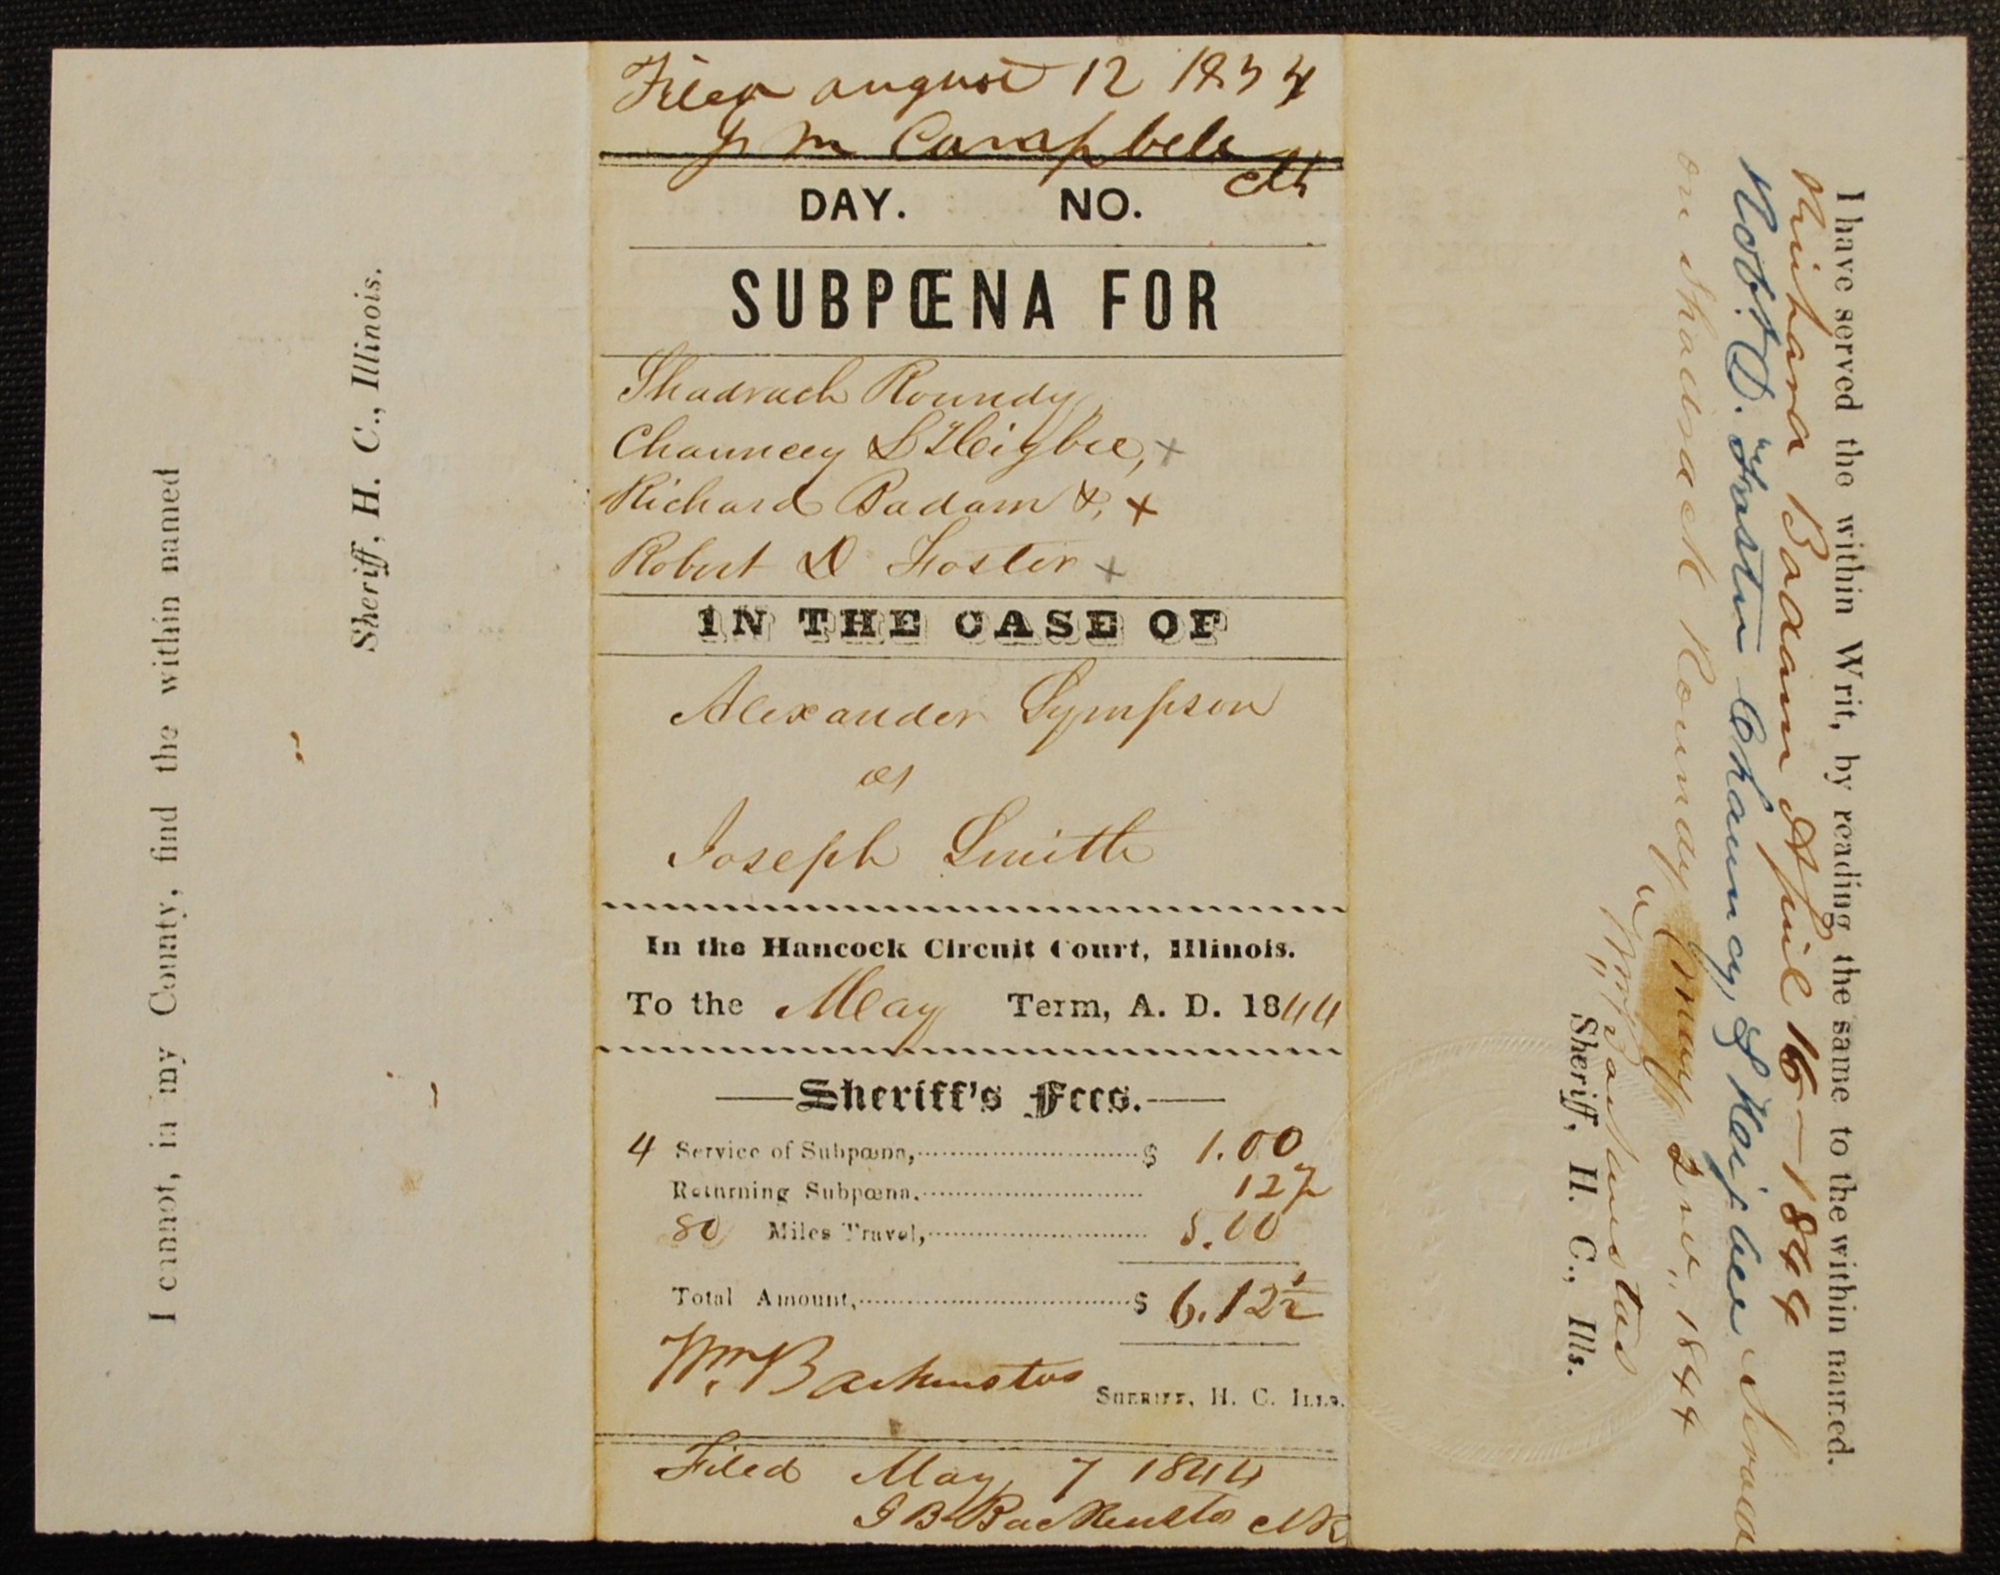 I cannot, in my County, find the within named
Sheriff, H. C., Illinois.
Filed august 12 1844
J M Campbell
clk
DAY. NO.
SUBPŒNA FOR
Shadrach Roundy,
Chauncey L Higbee, x
Richard Badam &, x
Robert D Foster x
IN THE CASE OF
Alexander Sympson
vs
Joseph Smith
In the Hancock Circuit Court, Illinois.
To the May Term, A. D. 1844
Sheriff's Fees.
4 Service of Subpœna, $ 1.00
Returning Subpœna. 12½
80 Miles Travel, 5.00
Total Amount, $ 6.12½
Wm. Backenstos SHERIFF, H. C. ILLS.
Filed May 7 1844
J B Backenstos clk
I have served the within Writ, by reading the same to the within named.
Richard Badam April 16 — 1844
Robt. D. Foster Chauncy, L Heigbee Served
on Shadrack Roundy May 2nd,, 1844
Wm. Backenstos
Sheriff, H. C., Ills.